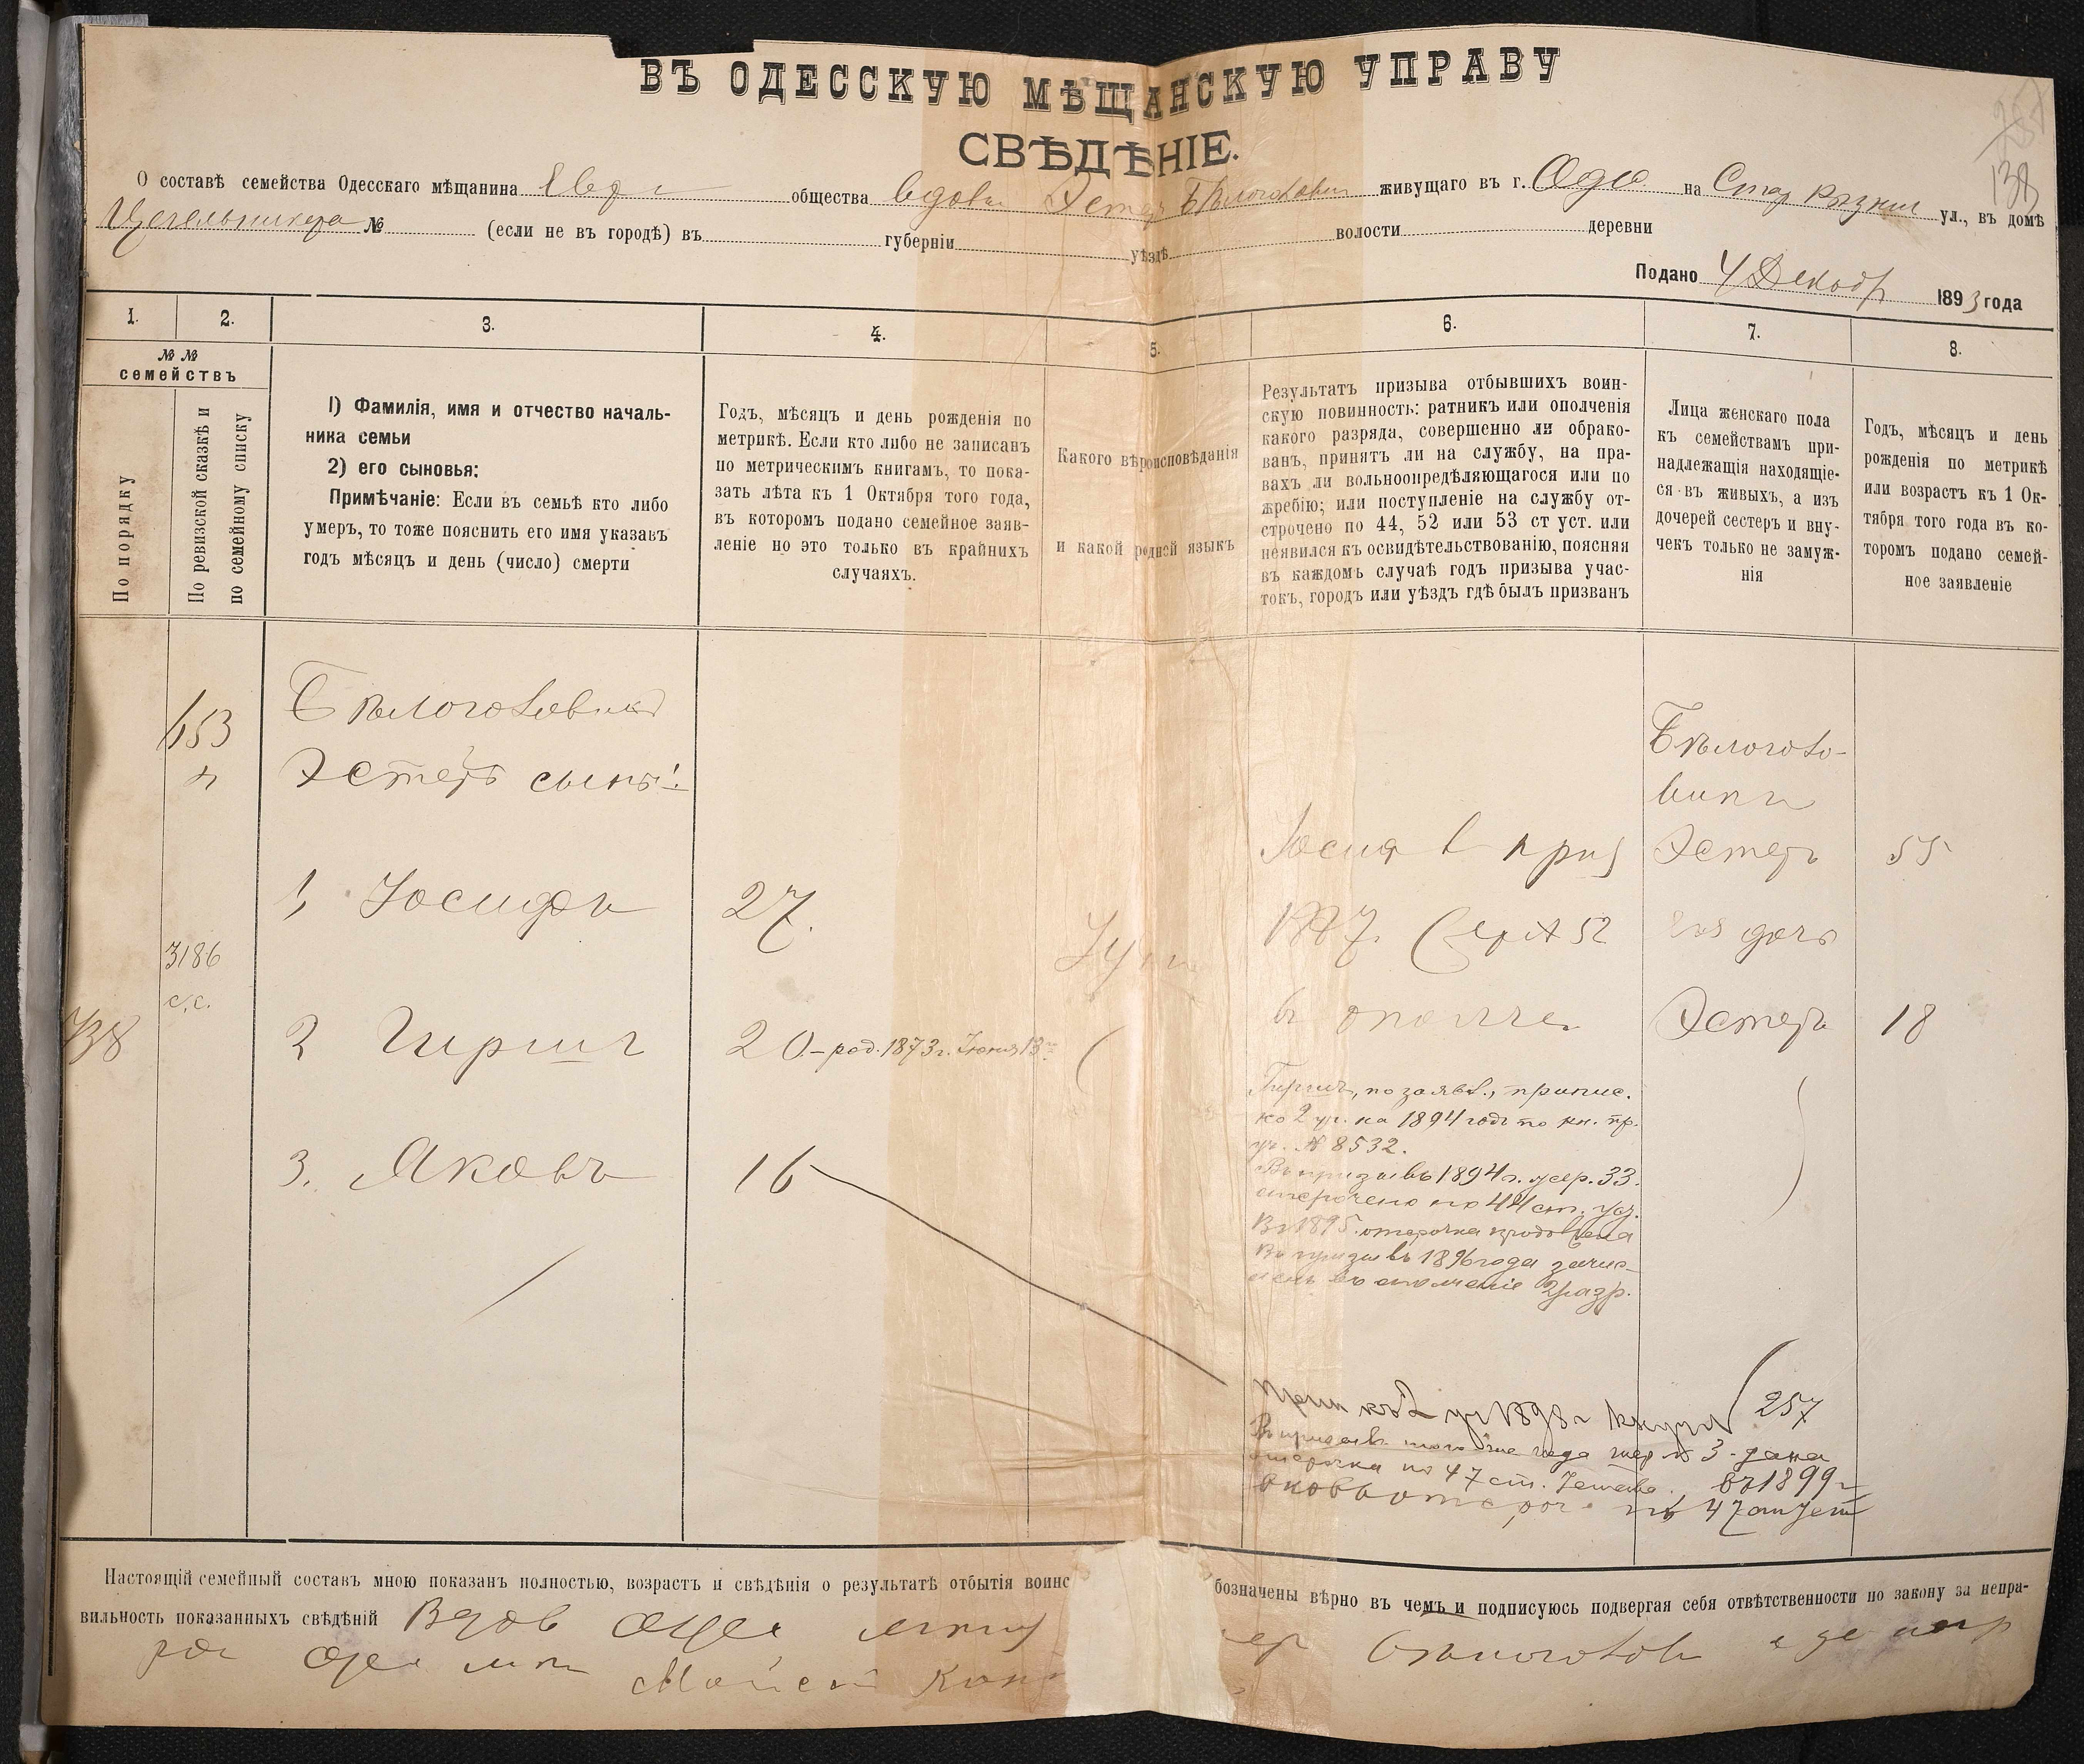 ВЪ ОДЕССКУЮ МѢЩАНСКУЮ УПРАВУ
СВѢДѢНІЕ.
138
О составѣ семейства Одесскаго мѣщанина общества вдовы Эстеръ живущаго въ г. Одес на Стар ул., въ домѣ
№ (если не въ городѣ) въ губерніи уѣздѣ волости деревни
Подано 4 Декабр 1893 года
1. 2. 3. 4. 5. 6. 7. 8.
№ №
семействъ
По порядку
По ревизской сказкѣ и
по семейному списку
1) Фамилія, имя и отчество началь-
ника семьи
2) его сыновья:
Примѣчаніе: Если въ семьѣ кто либо
умеръ, то тоже пояснить его имя указавъ
годъ мѣсяцъ и день (число) смерти
Годъ, мѣсяцъ и день рожденія по
метрикѣ. Если кто либо не записанъ
по метрическимъ книгамъ, то пока-
зать лѣта къ 1 Октября того года,
въ которомъ подано семейное заяв-
леніе но это только въ крайнихъ
случаяхъ.
Какого вѣроисповѣданія
и какой родной языкъ
Результатъ призыва отбывшихъ воин-
скую повинность: ратникъ или ополченія
какого разряда, совершенно ли обрако-
ванъ, принятъ ли на службу, на пра-
вахъ ли вольноопредѣляющагося или по
жребію; или поступленіе на службу от-
строчено по 44, 52 или 53 ст уст. или
неявился къ освидѣтельствованію, поясняя
въ каждомъ случаѣ годъ призыва учас-
токъ, городъ или уѣздъ гдѣ былъ призванъ
Лица женскаго пола
къ семействамъ при-
надлежащія находящіе-
ся въ живыхъ, а изъ
дочерей сестеръ и вну-
чекъ только не замуж-
нія
Годъ, мѣсяцъ и день
рожденія по метрикѣ
или возрастъ къ 1 Ок-
тября того года въ ко-
торомъ подано семей-
ное заявленіе
653
Эстеръ сыны:
Эстеръ 55
1, Іосифъ 27.
1887. 52
дочь
3186
с.с.
738
2 Гиршъ 20 – род. 1873 г. Іюня 13
в ополче
Эстеръ 18
Гиршъ, по заявл., припис.
ко 2 уч. на 1894 годъ по кн. пр.
уч. № 8532.
3. Яковъ 16
Въ призывъ 1894 г. жер. 33.
отсрочено по 44 ст. уст.
Въ 1895 отсрочка продолжена
Въ призывъ 1896 года зачис-
ленъ въ ополченіе 2 разр.
257
Въ призывъ того же года жер № 3 дана
отсрочка по 47 ст. Устава, въ 1899 г
Настоящій семейный составъ мною показанъ полностью, возрастъ и свѣдѣнія о результатѣ отбытія воинс бозначены вѣрно въ чемъ и подписуюсь подвергая себя отвѣтственности по закону за непра-
вильность показанныхъ свѣдѣній